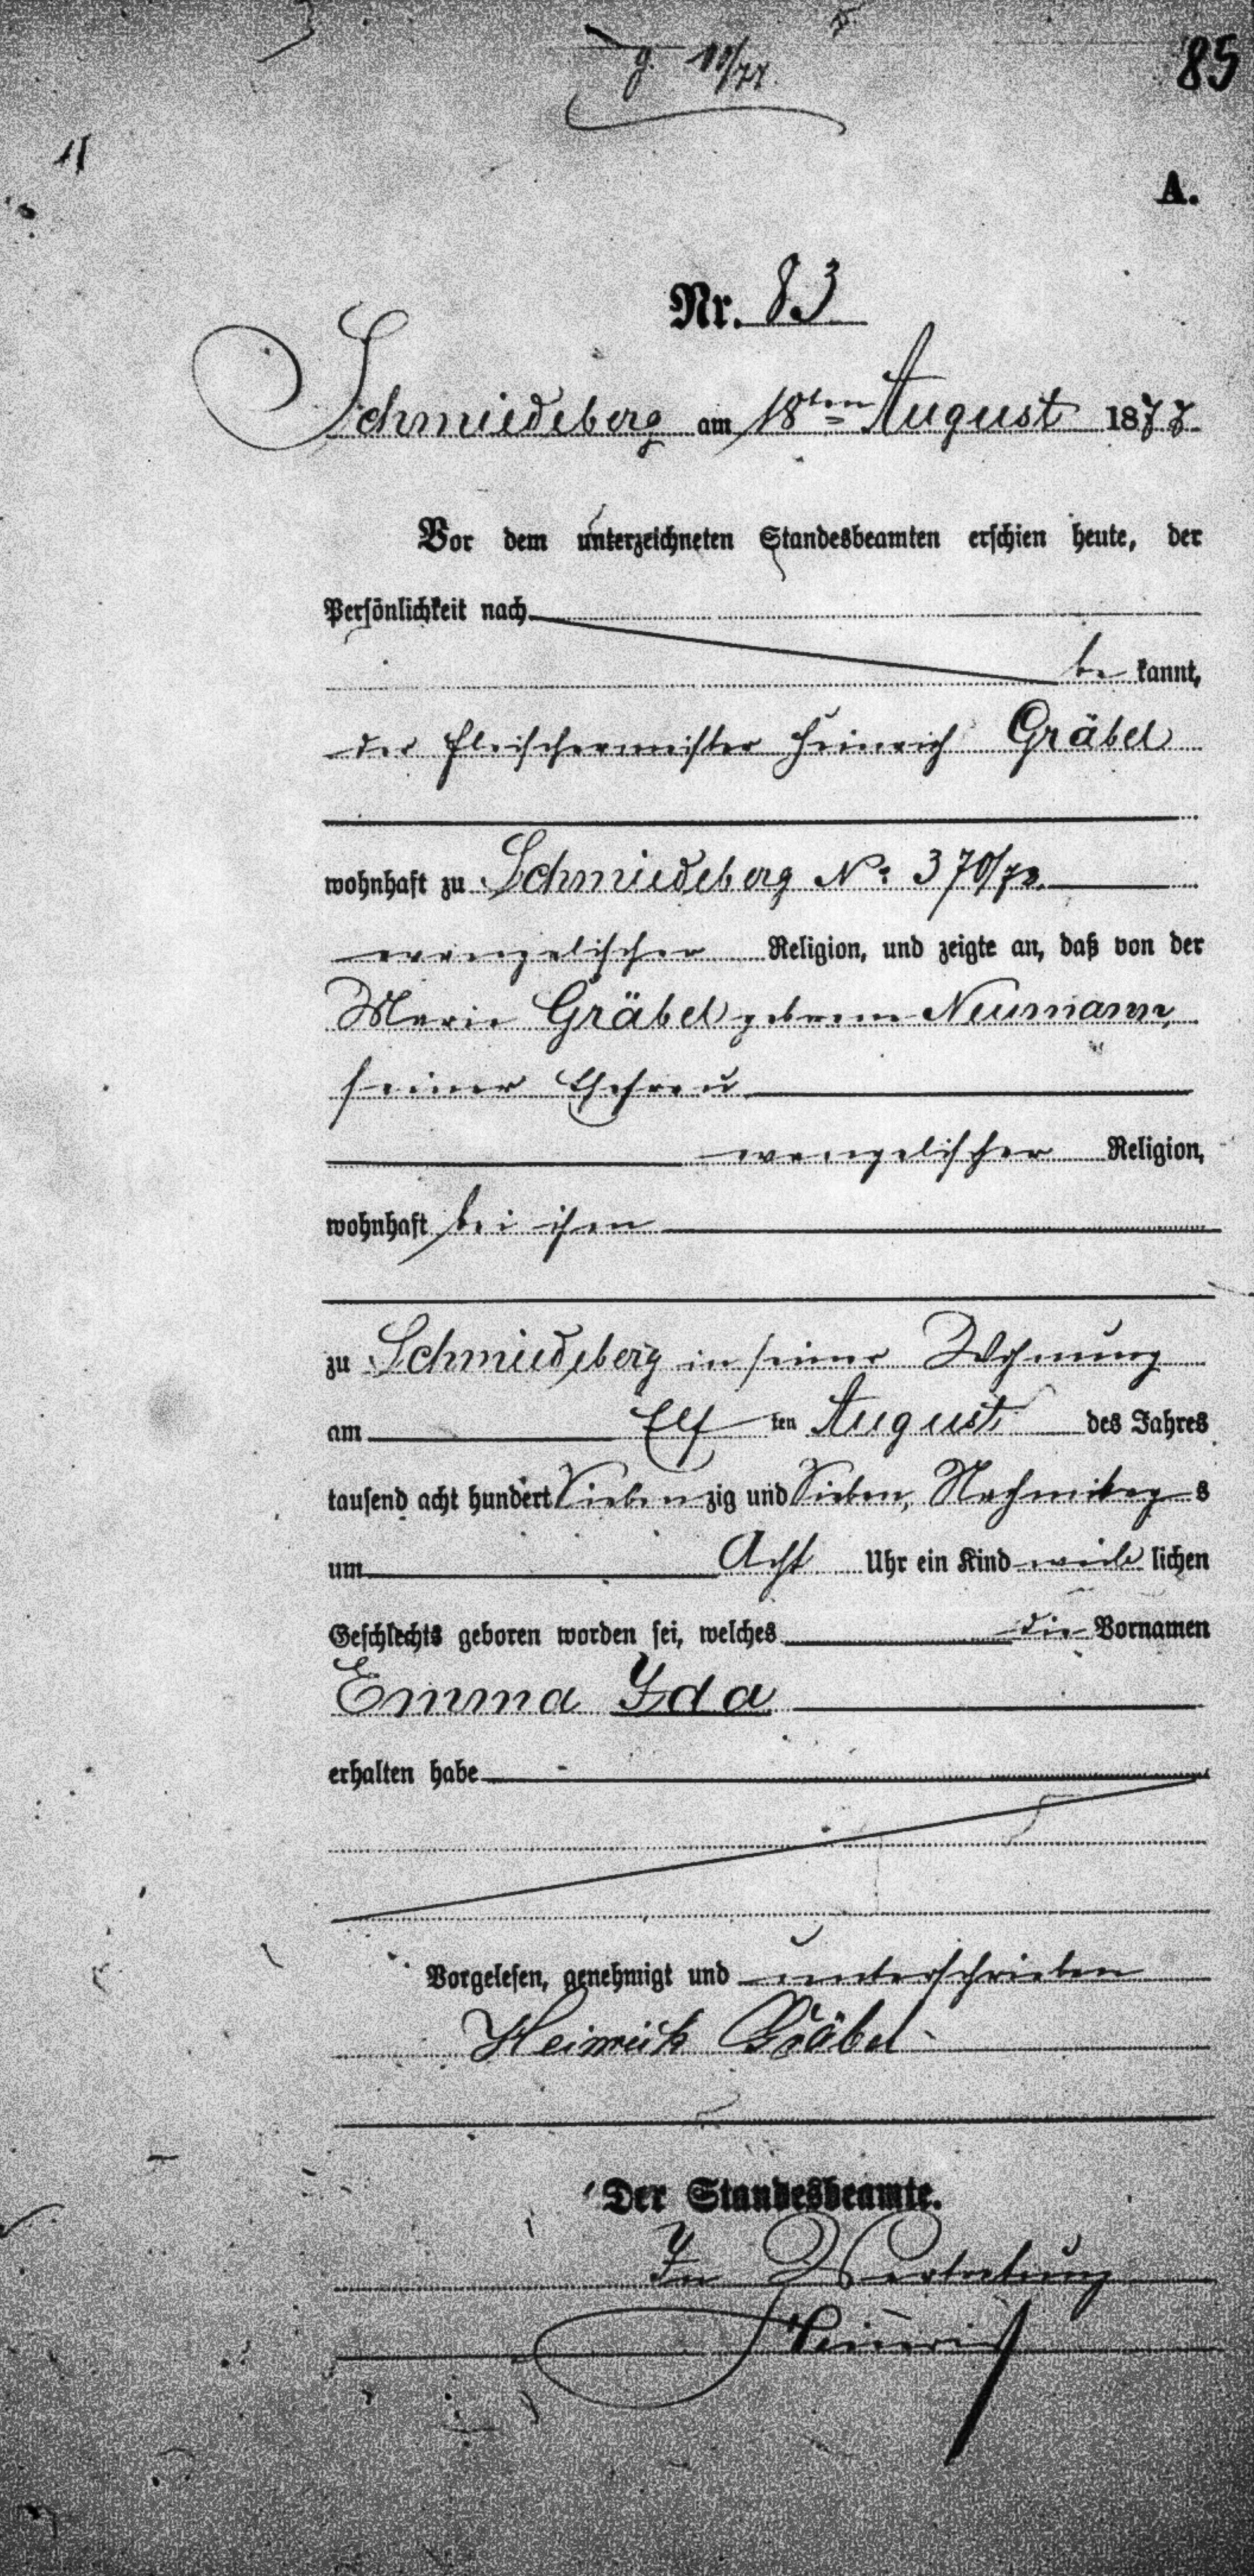 85
A.
Nr. 83
Schmiedeberg am 18ten August 1877.
Vor dem unterzeichneten Standesbeamten erschien heute, der
Persönlichkeit nach
be kannt,
der Fleischermeister Heinrich Gräbel
wohnhaft zu Schmiedeberg No: 370/72.
evangelischer Religion, und zeigte an, daß von der
Marie Gräbel geborene Neumann,
seiner Ehefrau
evangelischer Religion,
wohnhaft bei ihm
zu Schmiedeberg in seiner Wohnung
am Elf ten August des Jahres
tausend acht hundert Sieben zig und Sieben, Nachmittag s
um Acht Uhr ein Kind weib lichen
Geschlechts geboren worden sei, welches die Vornamen
Emma Ida
erhalten habe
Vorgelesen, genehmigt und unterschrieben
Heinrich Gräbel
Der Standesbeamte.
In Vertretung